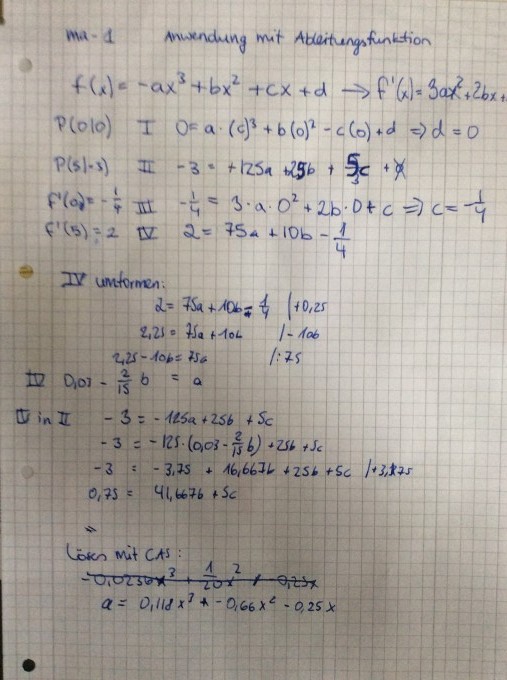 ma-1 Anwendung mit Ableitungsfunktion
f(x) = -ax³ + bx² + cx + d → f'(x) = 3ax² + 2bx +
P(0|0) I 0 = a·(c)³ + b(0)² - c(0) + d ⇒ d = 0
P(5|-3) II -3 = +125a + 25b + 5c + 0
f'(0) = -1/4 III -1/4 = 3·a·0² + 2b·0 + c ⇒ c = -1/4
f'(5) = 2 IV 2 = 75a + 10b - 1/4
IV umformen:
2 = 75a + 10b - 1/4 |+0,25
2,25 = 75a + 10b |-10b
2,25 - 10b = 75a |:75
IV 0,03 - 2/15 b = a
IV in II -3 = -125a + 25b + 5c
-3 = -125·(0,03 - 2/15 b) + 25b + 5c
-3 = -3,75 + 16,667b + 25b + 5c |+3,75
0,75 = 41,667b + 5c
Lösen mit CAS:
-0,0256x³ + 1/20 x² - 0,25x
a = 0,118x³ + -0,66x² - 0,25x